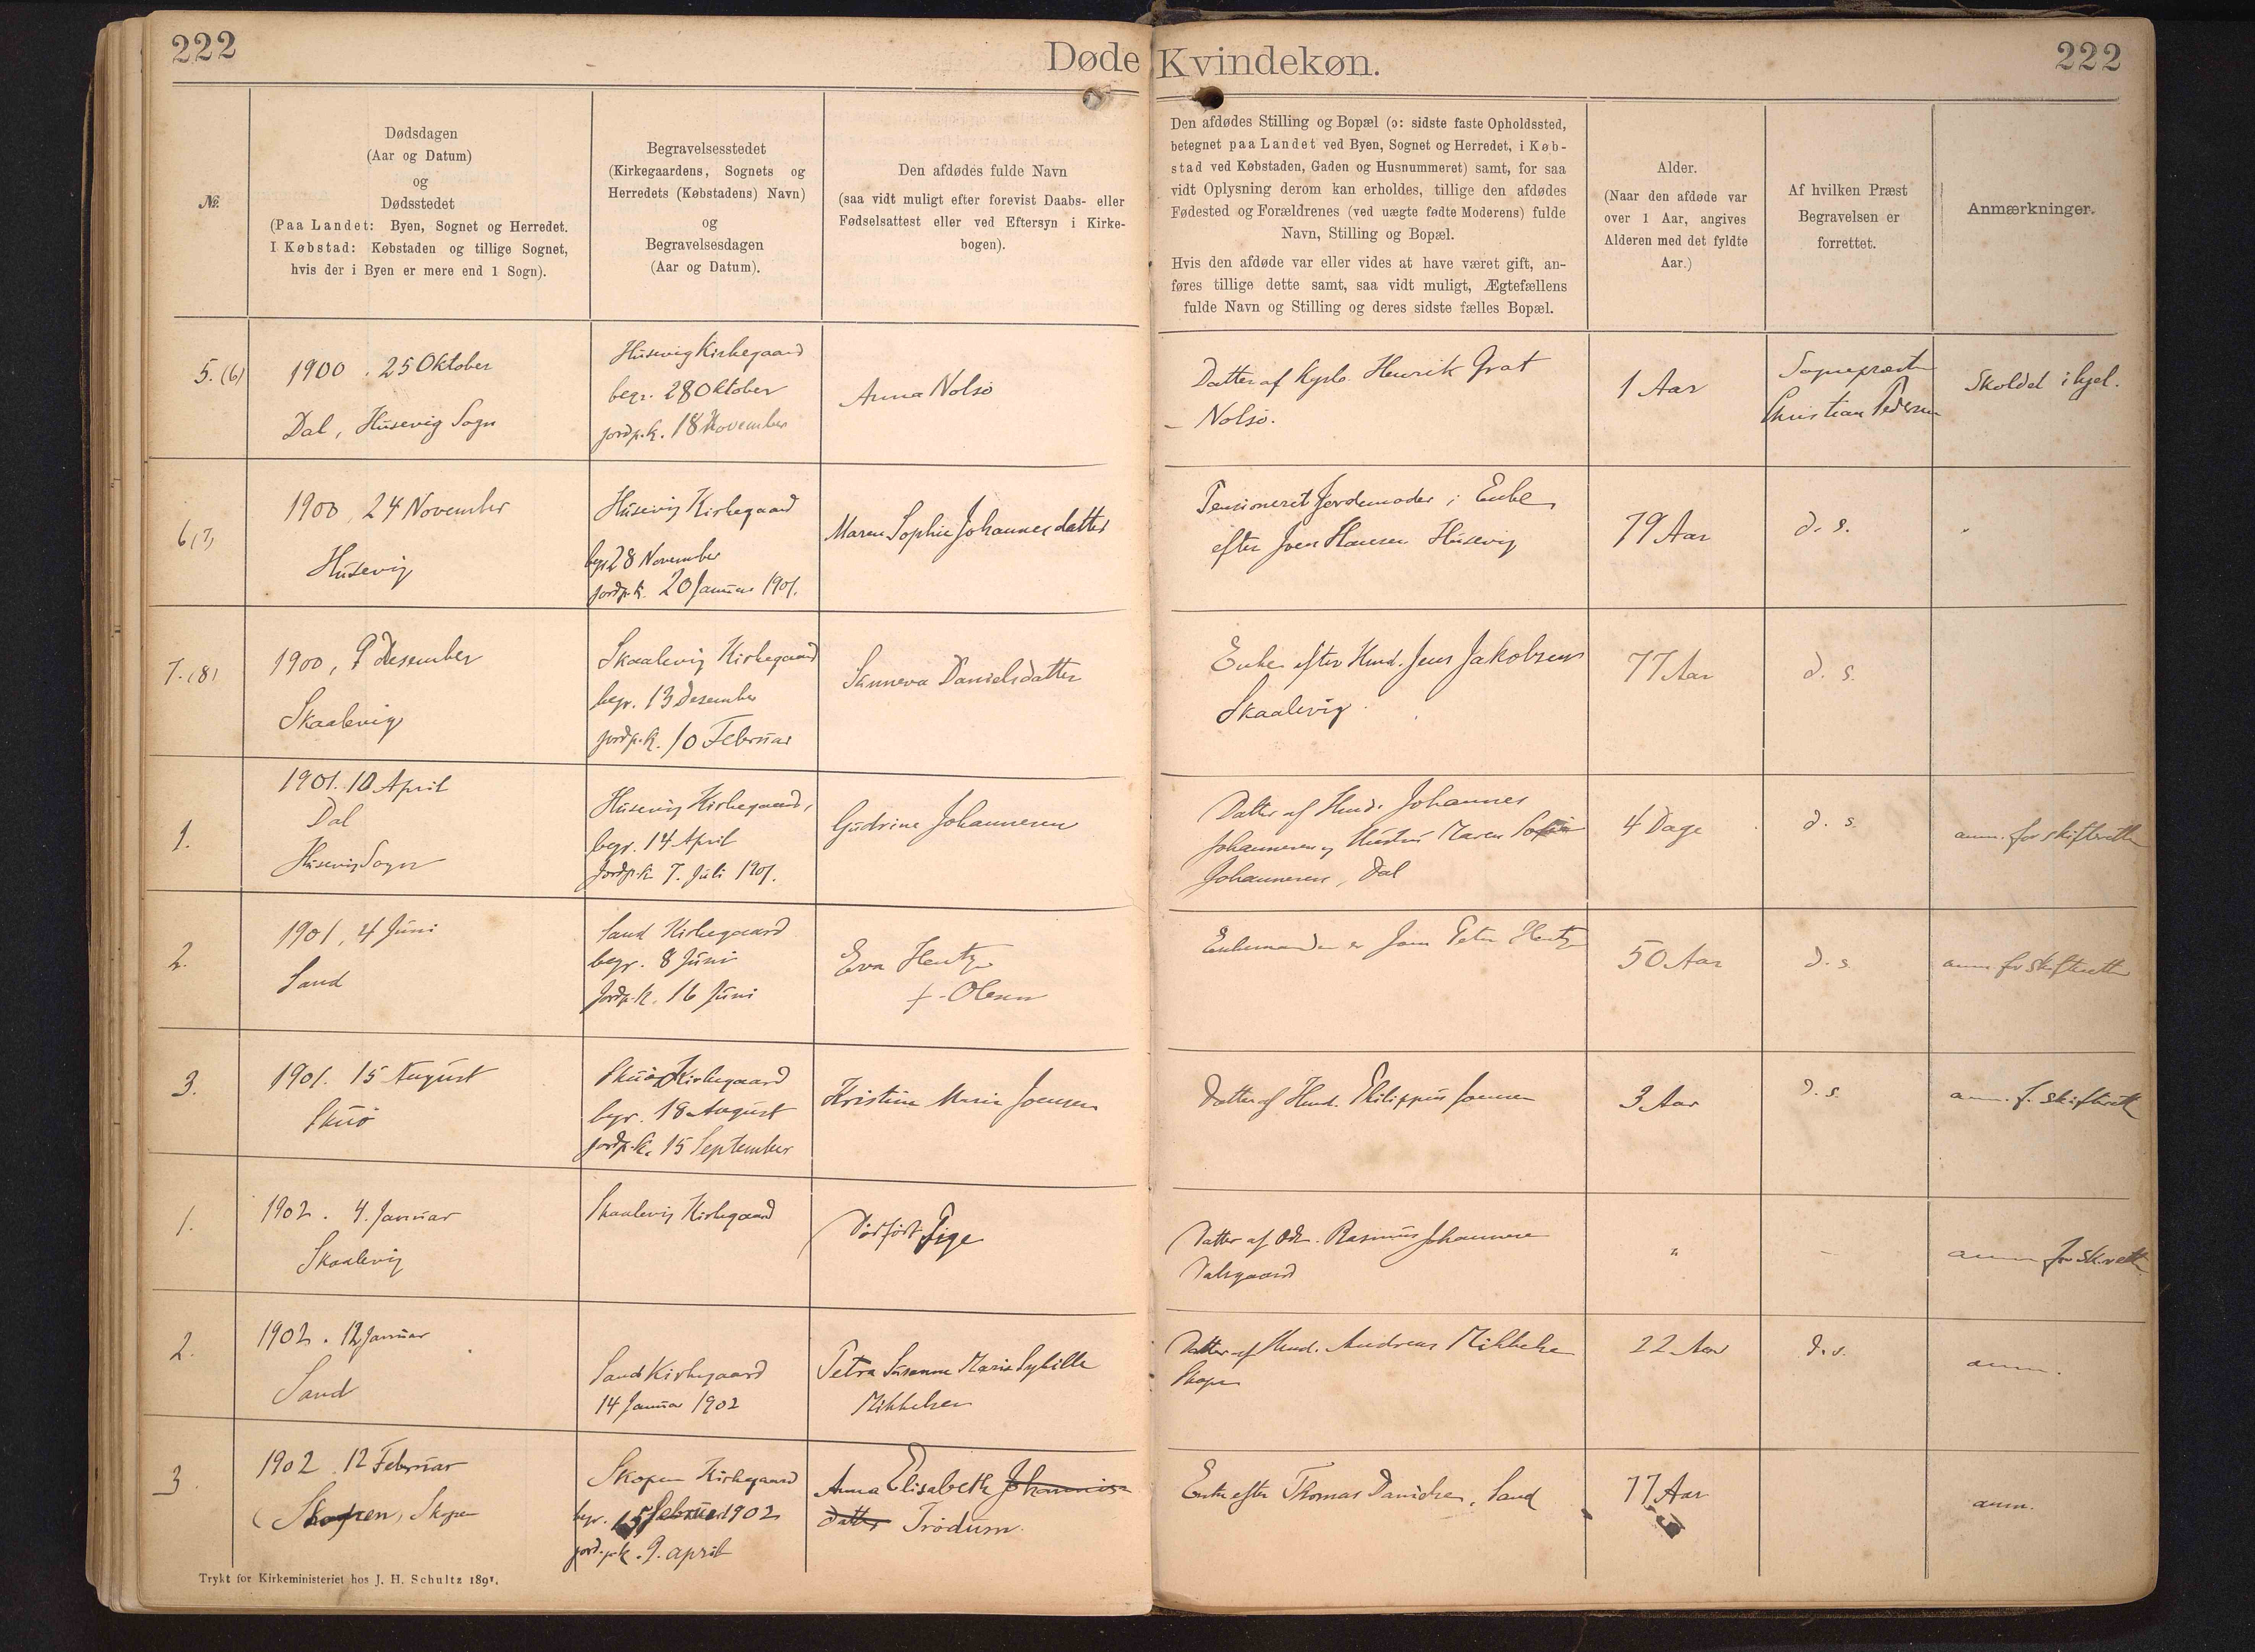 222
Døde Kvindekøn.
222
№.
Dødsdagen
(Aar og Datum)
og
Dødsstedet
(Paa Landet: Byen, Sognet og Herredet.
I Købstad: Købstaden og tillige Sognet,
hvis der i Byen er mere end 1 Sogn).
Begravelsesstedet
(Kirkegaardens, Sognets og
Herredets (Købstadens) Navn)
og
Begravelsesdagen
(Aar og Datum).
Den afdødes fulde Navn
(saa vidt muligt efter forevist Daabs- eller
Fødselsattest eller ved Eftersyn i Kirke-
bogen).
Den afdødes Stilling og Bopæl (ɔ: sidste faste Opholdssted,
betegnet paa Landet ved Byen, Sognet og Herredet, i Køb-
stad ved Købstaden, Gaden og Husnummeret) samt, for saa
vidt Oplysning derom kan erholdes, tillige den afdødes
Fødested og Forældrenes (ved uægte fødte Moderens) fulde
Navn, Stilling og Bopæl.
Hvis den afdøde var eller vides at have været gift, an-
føres tillige dette samt, saa vidt muligt, Ægtefællens
fulde Navn og Stilling og deres sidste fælles Bopæl.
Alder.
(Naar den afdøde var
over 1 Aar, angives
Alderen med det fyldte
Aar.)
Af hvilken Præst
Begravelsen er
forrettet.
Anmærkninger.
5. (6)
1900 . 25 Oktober
Dal, Husevig Sogn
Husevig Kirkegaard
begr. 28 Oktober
jordp.k. 18 November
Anna Nolsø
Datter af Henrik Grat
Nolsø.
1 Aar
Sognepræst
Christian Pedersen
Skoldet ihjel.
6 (7)
1900, 24 November
Husevig
Husevig Kirkegaard
begr 28 November
jordp.k. 20 Januar 1901.
Maren Sophie Johannesdatter
Pensioneret Jordemoder; Enke
efter Joen Hansen Husevig
79 Aar
d. s.
7. (8)
1900, 9 Desember
Skaalevig
Skaalevig Kirkegaard
begr. 13 Desember
jordp.k. 10 Februar
Sunneva Danielsdatter
Enke efter Hmd. Jens Jakobsen
Skaalevig.
77 Aar
d. s.
1.
1901. 10 April
Dal
Husevig Sogn
Husevig Kirkegaard,
begr. 14 April
Jordp.k. 7. Juli 1901.
Gudrine Johannesen
Datter af Hmd. Johannes
Johannesen og Hustru Maren Sofie
Johannesen, Dal
4 Dage
d. s.
anm. for skifteretten
2.
1901, 4 Juni
Sand
Sand Kirkegaard
begr. 8 Juni
Jordp.k. 16 Juni
Eva Hentze
f. Olesen
Enkemanden er Joen Peter Hentze
50 Aar
d. s.
anm for skifteretten
3.
1901. 15 August
Skuø
Skuø Kirkegaard
begr. 18 August
jordp.k. 15 September
Kristine Marie Joensen
Datter af Hmd. Philippus Joensen
3 Aar
d. s.
anm. f. skifterett
1.
1902. 4. Januar
Skaalevig
Skaalevig Kirkegaard
Dødfødt Pige
Datter af Rasmus Johannesen
Dalsgaard
"
–
anm for sk.rett
2.
1902. 12 Januar
Sand
Sand Kirkegaard
14 Januar 1902
Petra Susanne Marie Sybille
Mikkelsen
Datter af Hmd. Andreas Mikkelsen
Skopen
22 Aar
d. s.
anm.
3.
1902. 12 Februar
Skopen, Skopen
Skopen Kirkegaard
begr. 15 Februar 1902
jord.p.k. 9. april
Anna Elisabeth Johannis
datter Trødum.
Enke efter Thomas Danielsen, Sand
77 Aar
anm.
Trykt for Kirkeministeriet hos J. H. Schultz 1891.